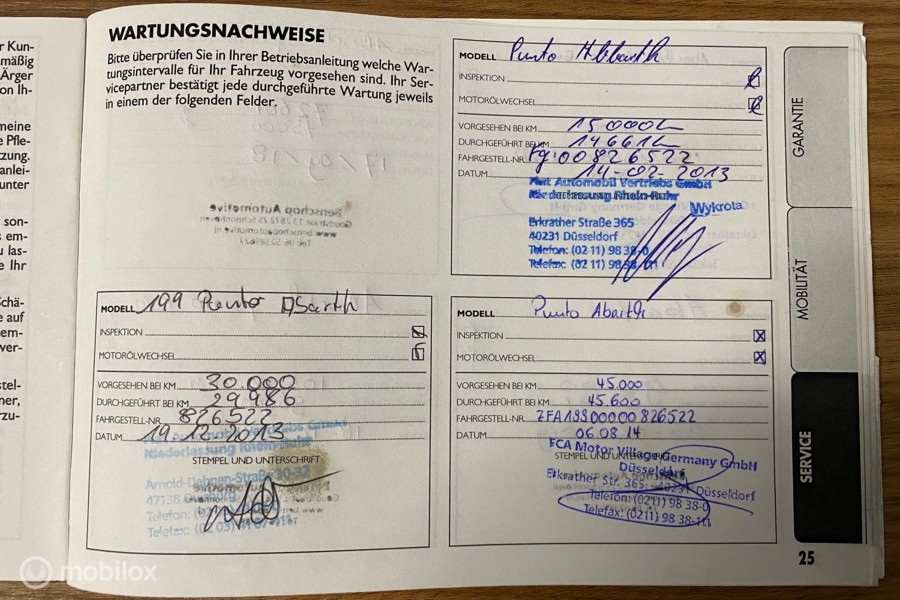 WARTUNGSNACHWEISE
Bitte überprüfen Sie in Ihrer Betriebsanleitung welche War-
tungsintervalle für Ihr Fahrzeug vorgesehen sind. Ihr Ser-
vicepartner bestätigt jede durchgeführte Wartung jeweils
in einem der folgenden Felder.
MODELL Punto Abbarth
INSPEKTION
MOTORÖLWECHSEL
VORGESEHEN BEI KM 15000
DURCHGEFÜHRT BEI KM 14661
FAHRGESTELL-NR. Fg:00826522
DATUM 14-02-2013
Fiat Automobil Vertriebs GmbH
Niederlassung Rhein-Ruhr
Wykrota
Erkrather Straße 365
40231 Düsseldorf
Telefon: (02 11) 98 38-0
Telefax: (02 11) 98 38-111
MODELL 199 Punto Abarth
INSPEKTION
MOTORÖLWECHSEL
VORGESEHEN BEI KM 30.000
DURCHGEFÜHRT BEI KM 29986
FAHRGESTELL-NR. 826522
DATUM 19.12.2013
Niederlassung Rhein-Ruhr
STEMPEL UND UNTERSCHRIFT
47138
Telefon:
Telefax:
MODELL Punto Abarth
INSPEKTION X
MOTORÖLWECHSEL X
VORGESEHEN BEI KM 45.000
DURCHGEFÜHRT BEI KM 45.600
FAHRGESTELL-NR. ZFA19900000826522
DATUM 06.08.14
FCA Motor Village Germany GmbH
STEMPEL UND
Düsseldorf
Erkrather Str. 365, 40231 Düsseldorf
Telefon: (0211) 98 38-0
Telefax: (0211) 98 38-111
GARANTIE
MOBILITÄT
SERVICE
25
mobilox